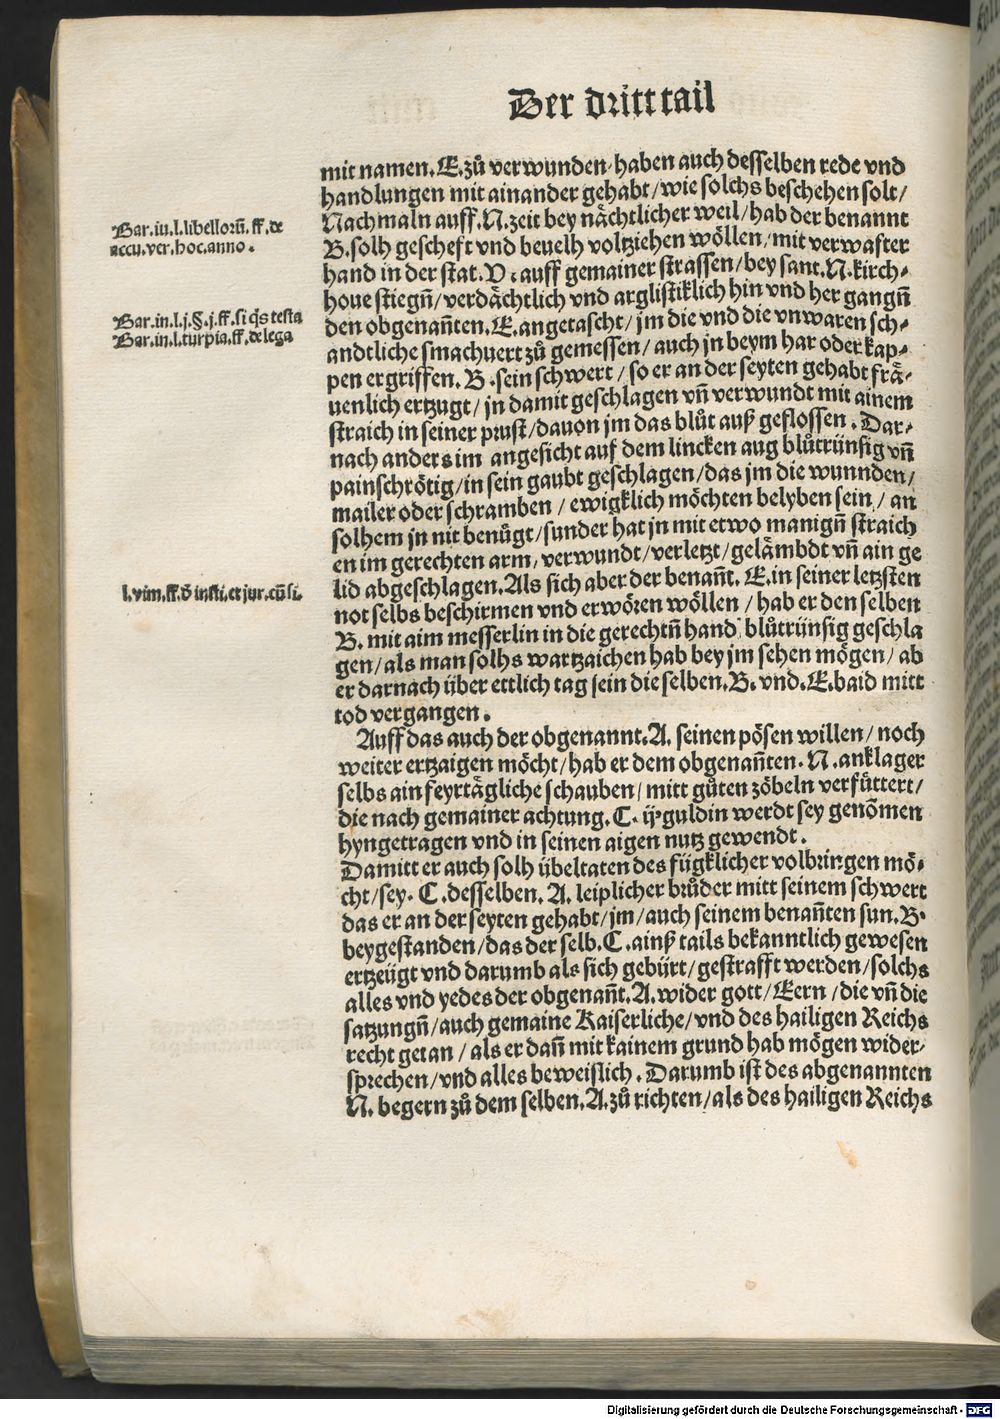 Der dritt tail
mit namen. E. zů verwunden / haben auch desselben rede vnd
handlungen mit ainander gehabt / wie solchs beschehen solt /
Nachmaln auff. N. zeit bey nächtlicher weil / hab der benannt
B. solh gescheft vnd beuelh voltziehen wöllen / mit verwafter
hand in der stat. V. auff gemainer strassen / bey sant. N. kirch⸗
houe stiegñ / verdächtlich vnd arglistiklich hin vnd her gangñ
den obgenañten. E. angetascht / jm die vnd die vnwaren sch⸗
andtliche smachuert zů gemessen / auch jn beym har oder kap⸗
pen ergriffen. B. sein schwert / so er an der seyten gehabt frä⸗
uenlich ertzugt / jn damit geschlagen vñ verwundt mit ainem
straich in seiner prust / dauon jm das blůt auß geflossen. Dar⸗
nach anders im angesicht auf dem lincken aug blůtrünsig vñ
painschrötig / in sein gaubt geschlagen / das jm die wunnden /
mailer oder schramben / ewigklich möchten belyben sein / an
solhem jn nit benůgt / sunder hat jn mit etwo manigñ straich
en im gerechten arm, verwundt / verletzt / gelämbdt vñ ain ge
lid abgeschlagen. Als sich aber der benañt. E. in seiner letzsten
not selbs beschirmen vnd erwören wöllen / hab er den selben
B. mit aim messerlin in die gerechtñ hand blůtrünsig geschla
gen / als man solhs wartzaichen hab bey jm sehen mögen / ab
er darnach über ettlich tag sein die selben. B. vnd. E. baid mitt
tod vergangen.
Auff das auch der obgenannt. A. seinen pösen willen / noch
weiter ertzaigen möcht / hab er dem obgenañten. N. anklager
selbs ain feyrtägliche schauben / mitt gůten zöbeln verfüttert /
die nach gemainer achtung. C. ij guldin werdt sey genõmen
hyngetragen vnd in seinen aigen nutz gewendt.
Damitt er auch solh übeltaten des fügklicher volbringen mö⸗
cht / sey. C. desselben. A. leiplicher brůder mitt seinem schwert
das er an der seyten gehabt / jm / auch seinem benañten sun. B.
beygestanden / das der selb. C. ainß tails bekanntlich gewesen
ertzeügt vnd darumb als sich gebürt / gestrafft werden / solchs
alles vnd yedes der obgenañt. A. wider gott / Eern / die vñ die
satzungñ / auch gemaine Kaiserliche / vnd des hailigen Reichs
recht getan / als er dañ mit kainem grund hab mögen wider⸗
sprechen / vnd alles beweislich. Darumb ist des abgenannten
N. begern zů dem selben. A. zů richten / als des hailigen Reichs
Bar. in. l. libellorũ. ff. de
accu. ver. hoc. anno.
Bar. in. l. j. §. j. ff. si q̃s testa
Bar. in. l. turpia. ff. de lega
l. vim. ff. ð insti. et jur. cũ si.
Digitalisierung gefördert durch die Deutsche Forschungsgemeinschaft - DFG